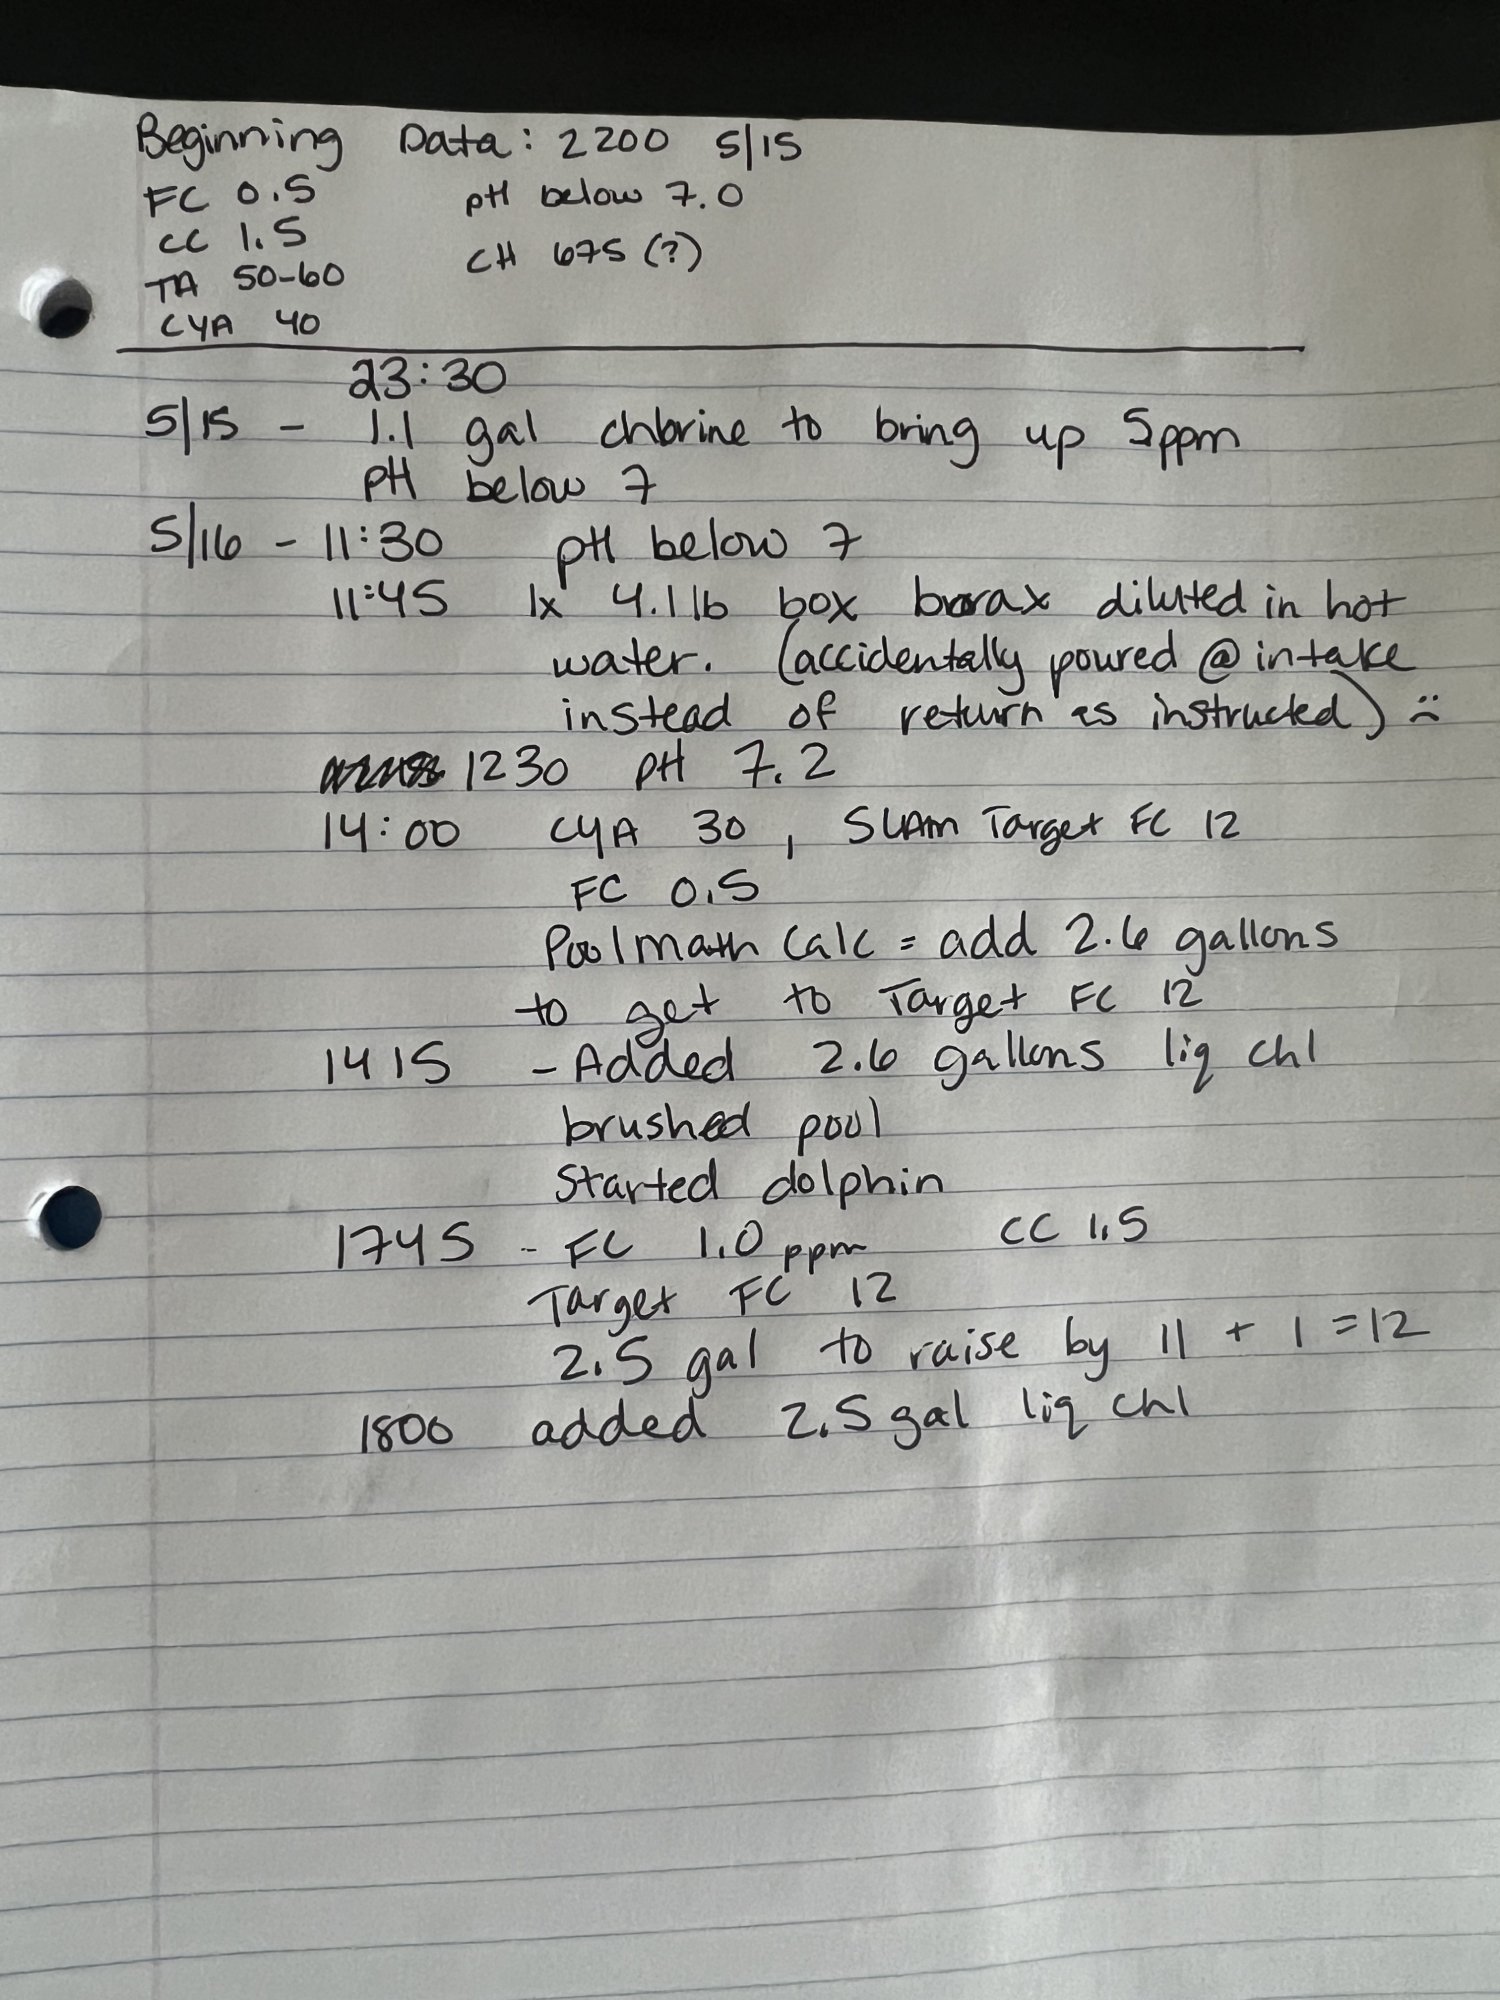 Beginning Data: 2200 5/15
FC 0.5 pH below 7.0
CC 1.5
TA 50-60 CH 675 (?)
CYA 40
23:30
5/15 - 1.1 gal chlorine to bring up 5ppm
pH below 7
5/16 - 11:30 pH below 7
11:45 1x 4.1 lb box borax diluted in hot
water. (accidentally poured @ intake
instead of return as instructed) :(
1230 pH 7.2
14:00 CYA 30, SLAM Target FC 12
FC 0.5
Poolmath Calc = add 2.6 gallons
to get to Target FC 12
1415 - Added 2.6 gallons liq chl
brushed pool
Started dolphin
1745 - FC 1.0 ppm CC 1.5
Target FC 12
2.5 gal to raise by 11 + 1 = 12
1800 added 2.5 gal liq chl